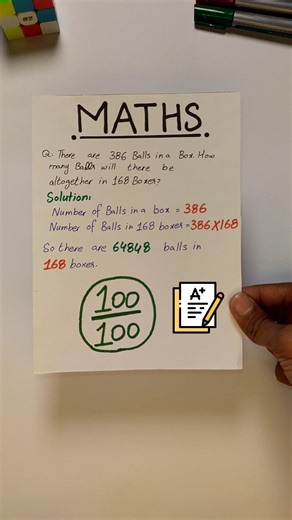 MATHS
Q: There are 386 Balls in a Box. How
many Balls will there be
altogether in 168 Boxes?
Solution:
Number of Balls in a box = 386
Number of Balls in 168 boxes = 386X168
So there are 64848 balls in
168 boxes.
100
100
A+